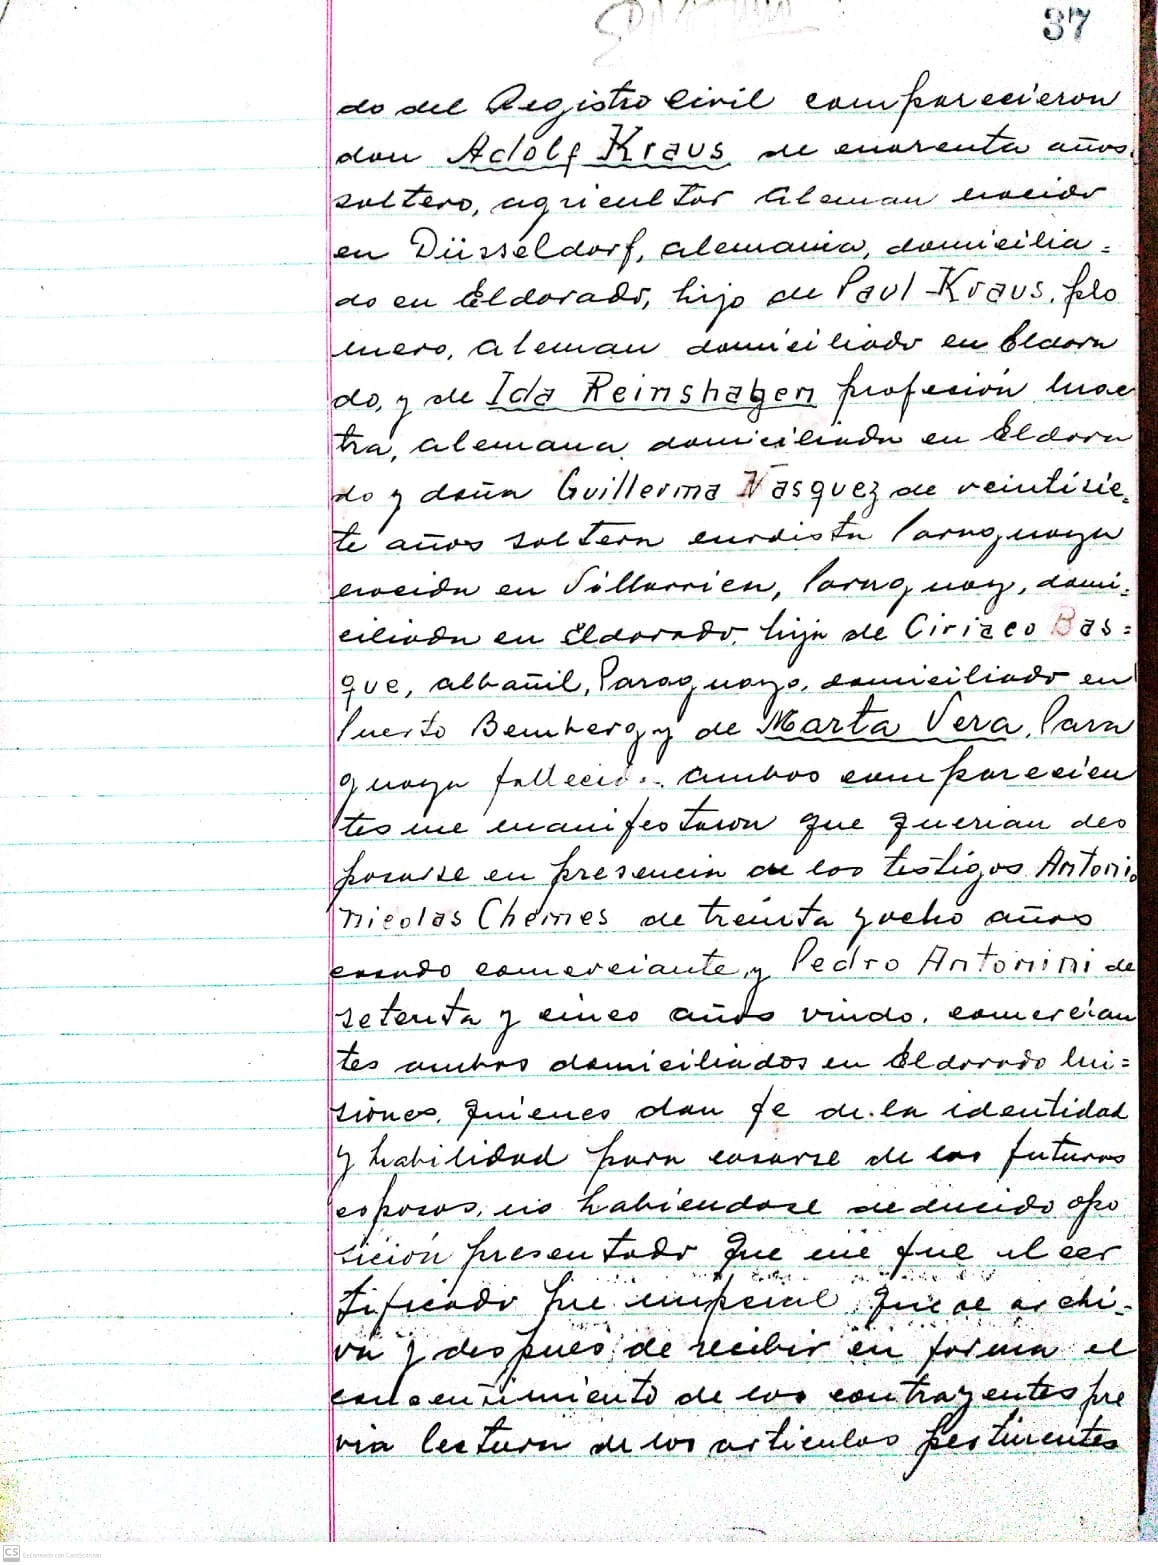 37
do del Registro Civil comparecieron
don Adolf Kraus de cuarenta años
soltero, agricultor aleman nacido
en Düsseldorf, alemania, domicilia=
do en Eldorado, hijo de Paul Kraus, plo
mero, aleman domiciliado en Eldora
do, y de Ida Reinshagen profesión maes
tra, alemana domiciliada en Eldora
do y doña Guillerma Vasquez de veintisie=
te años soltera enodista Paraguaya
nacida en Villarrica, Paraguay, domi=
ciliada en Eldorado, hija de Ciriaco Bas=
que, albañil, Paraguayo, domiciliado en
Puerto Bemberg y de Marta Vera, Para
guaya falleci.. ambos comparecien
tes me manifestaron que querian des
posarse en presencia de los testigos Antonio
Nicolas Chemes de treinta y ocho años
casado comerciante, y Pedro Antonini de
setenta y cinco años viudo, comercian
tes ambos domiciliados en Eldorado Mi=
siones, quienes dan fe de la identidad
y habilidad para casarse de los futuros
esposos, no habiendose deducido opo
sición presentado que me fue el cer
tificado pre nupcial que se archi=
va y después de recibir en forma el
consentimiento de los contrayentes pre
via lectura de los articulos pertinentes
CS Escaneado con CamScanner